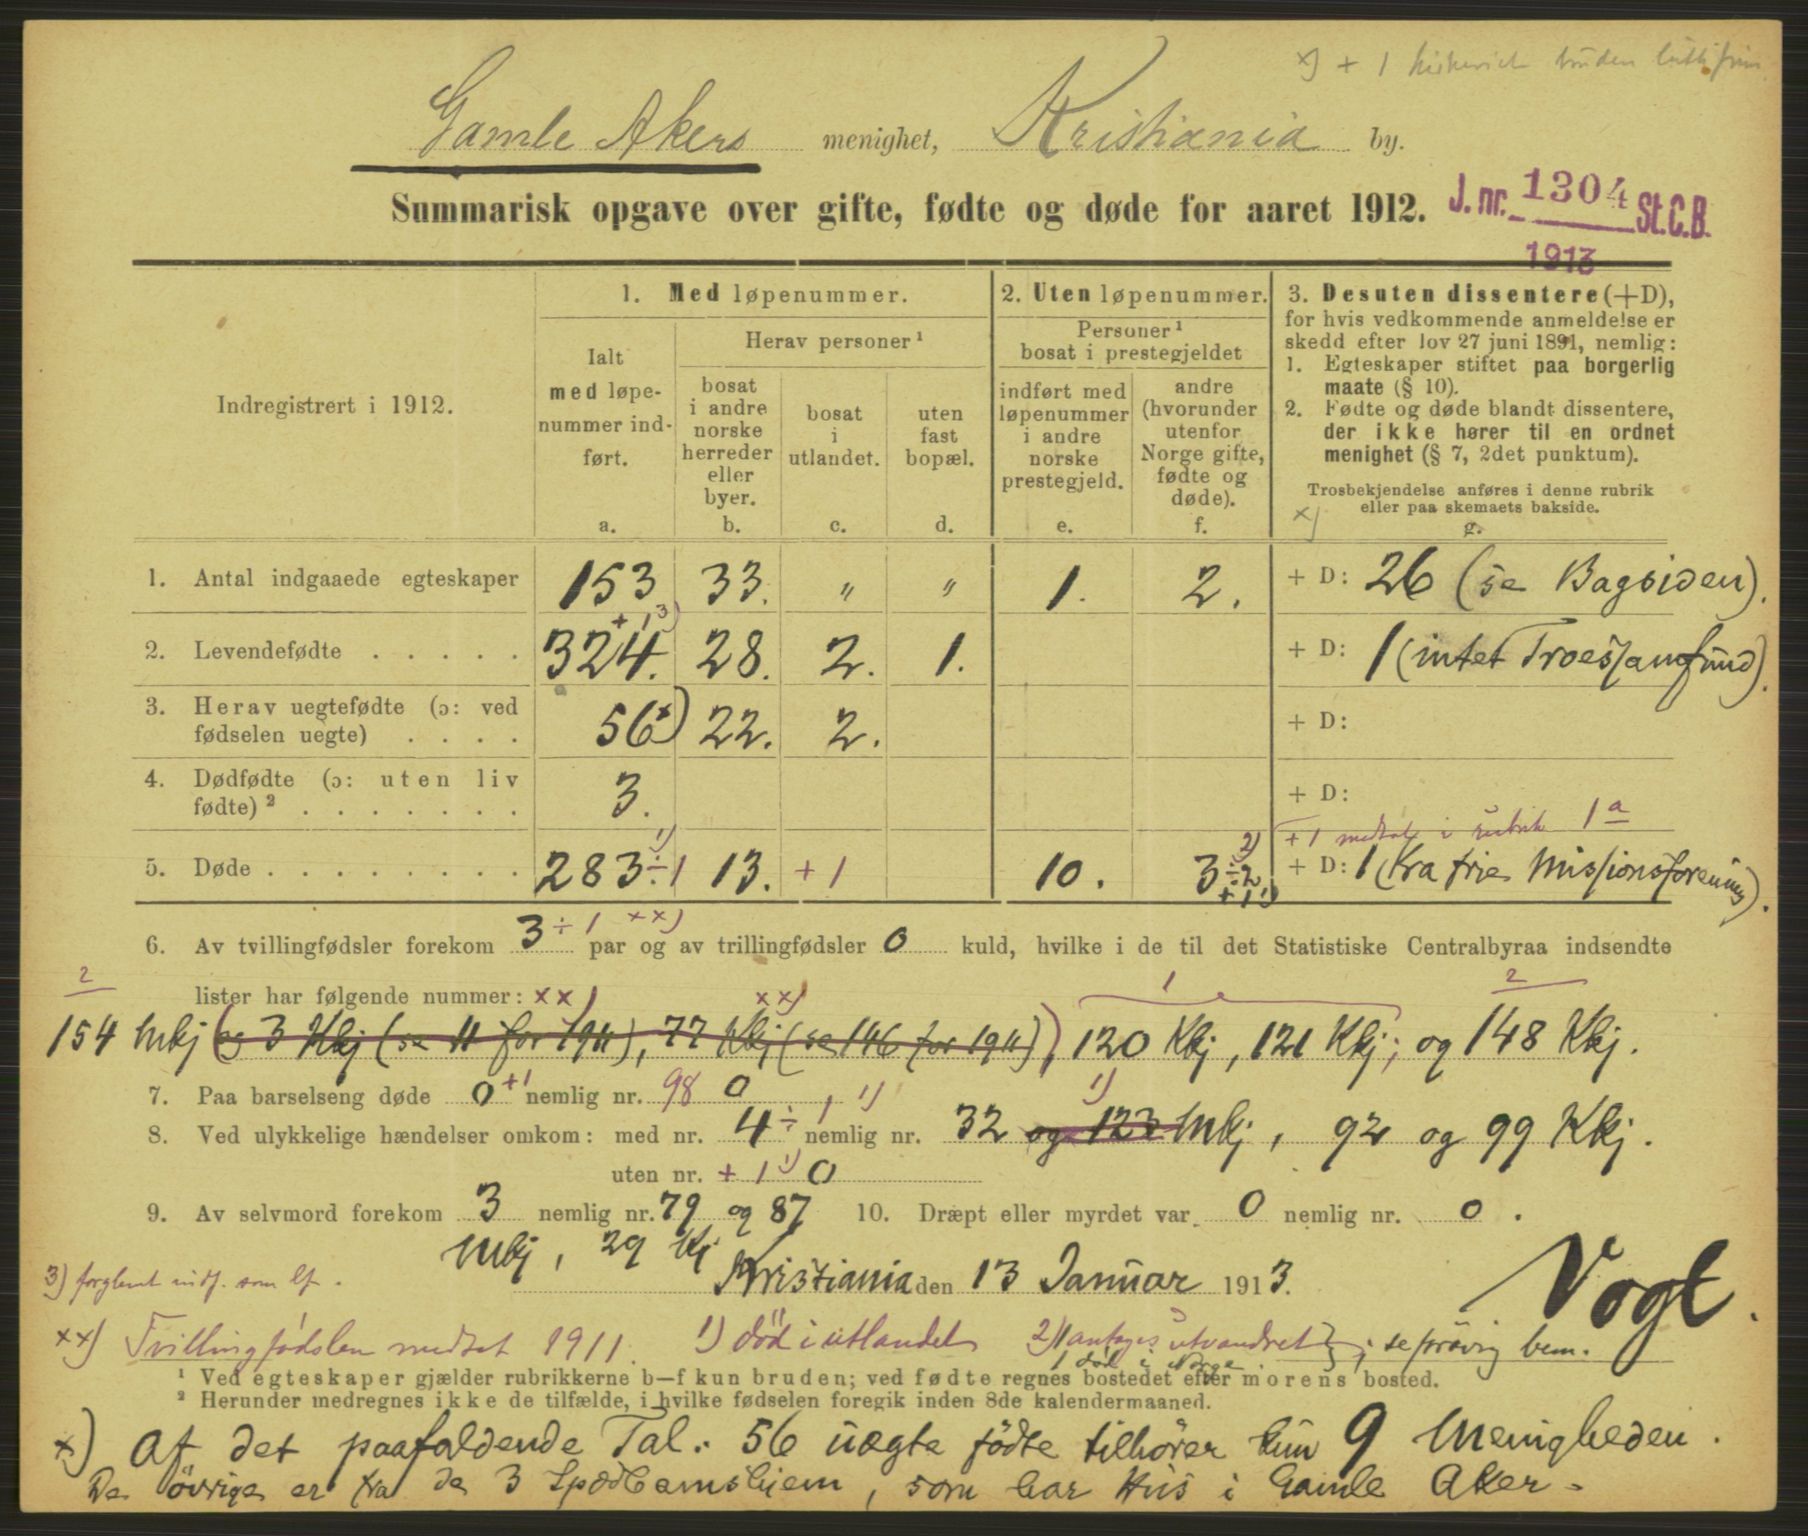 x) + 1
Gamle Akers menighet, Kristiania by.
Summarisk opgave over gifte, fødte og døde for aaret 1912.
J. nr. 1304 St. C. B.
1913
Indregistrert i 1912.
1. Med løpenummer.
Ialt med løpenummer indført.
a.
Herav personer ¹
bosat i andre norske herreder eller byer.
b.
bosat i utlandet.
c.
uten fast bopæl.
d.
2. Uten løpenummer.
Personer ¹ bosat i prestegjeldet
indført med løpenummer i andre norske prestegjeld.
e.
andre (hvorunder utenfor Norge gifte, fødte og døde).
f.
3. Desuten dissentere (+D),
for hvis vedkommende anmeldelse er
skedd efter lov 27 juni 1891, nemlig:
1. Egteskaper stiftet paa borgerlig
maate (§ 10).
2. Fødte og døde blandt dissentere,
der ikke hører til en ordnet
menighet (§ 7, 2det punktum).
Trosbekjendelse anføres i denne rubrik
eller paa skemaets bakside.
x)
g.
1. Antal indgaaede egteskaper 153 33. " " 1. 2. + D: 26 (se Bagsiden).
+ 1 3)
2. Levendefødte . . . . . 324. 28. 2. 1. + D: 1 (intet Troessamfund).
3. Herav uegtefødte (ɔ: ved
fødselen uegte) . . . . 56 x) 22. 2. + D:
4. Dødfødte (ɔ: uten liv
fødte) ² . . . . . . . 3. + D:
+ 1 medtat i rubrik 1 a
5. Døde . . . . . . . . 283 ÷ 1 1) 13. + 1 10. 3 ÷ 2 2) + 1 1) + D: 1 (fra frie Missionsforening).
6. Av tvillingfødsler forekom 3 ÷ 1 xx) par og av trillingfødsler 0 kuld, hvilke i de til det Statistiske Centralbyraa indsendte
lister har følgende nummer: xx) xx) 1 2
2
154 Mkj (og 3 Kkj (se 11 for 1911), 77 Kkj (se 146 for 1911)), 120 Kkj, 121 Kkj; og 148 Kkj.
7. Paa barselseng døde 0 + 1 nemlig nr. 98 0
8. Ved ulykkelige hændelser omkom: med nr. 4 ÷ 1 1) nemlig nr. 32 og 123 1) Mkj, 92 og 99 Kkj.
uten nr. + 1 1) 0
9. Av selvmord forekom 3 nemlig nr. 79 og 87 10. Dræpt eller myrdet var 0 nemlig nr. 0.
Mkj, 29 Kj
Kristiania den 13 Januar 1913.
Vogt.
3) forglemt indf. som lf.
xx) Tvillingfødslen medtat 1911. 1) død i utlandet 2) 1 antages utvandret; se forøvrig bem.
1 død i Norge
¹ Ved egteskaper gjælder rubrikkerne b—f kun bruden; ved fødte regnes bostedet efter morens bosted.
² Herunder medregnes ikke de tilfælde, i hvilke fødselen foregik inden 8de kalendermaaned.
x) Af det paafaldende Tal: 56 uægte fødte tilhører kun 9 Menigheden.
De øvrige er fra de 3 Spædbarnshjem, som har Hus i Gamle Aker.